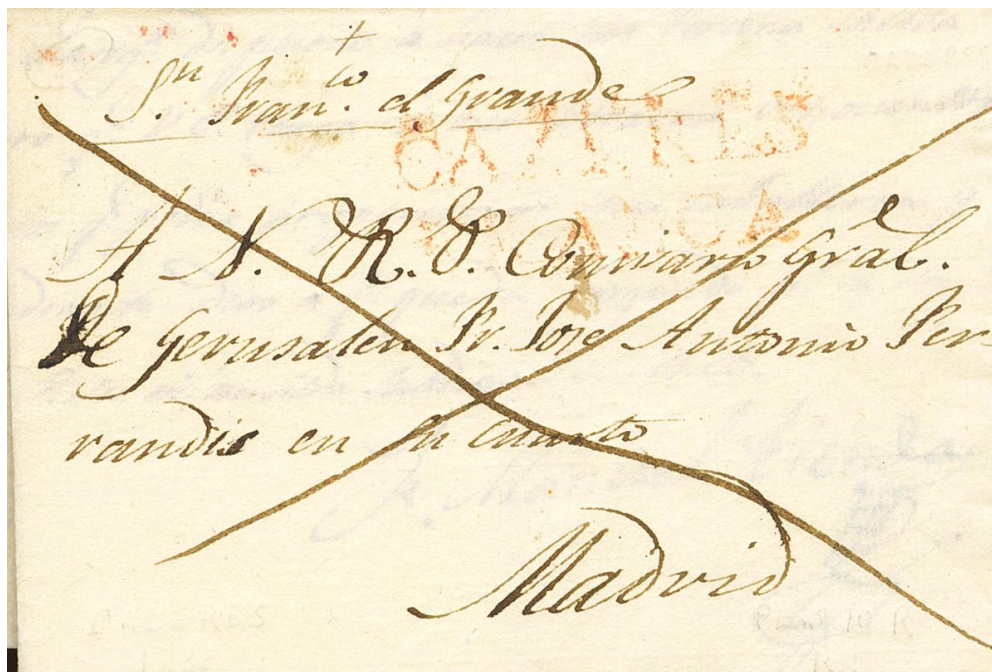 Sn. Franco. el Grande
CAZARES
FRANCA
A N. R. P. Comisario Gral.
de Gerusalen Fr. Jose Antonio Fer-
randis en su cuarto
Madrid